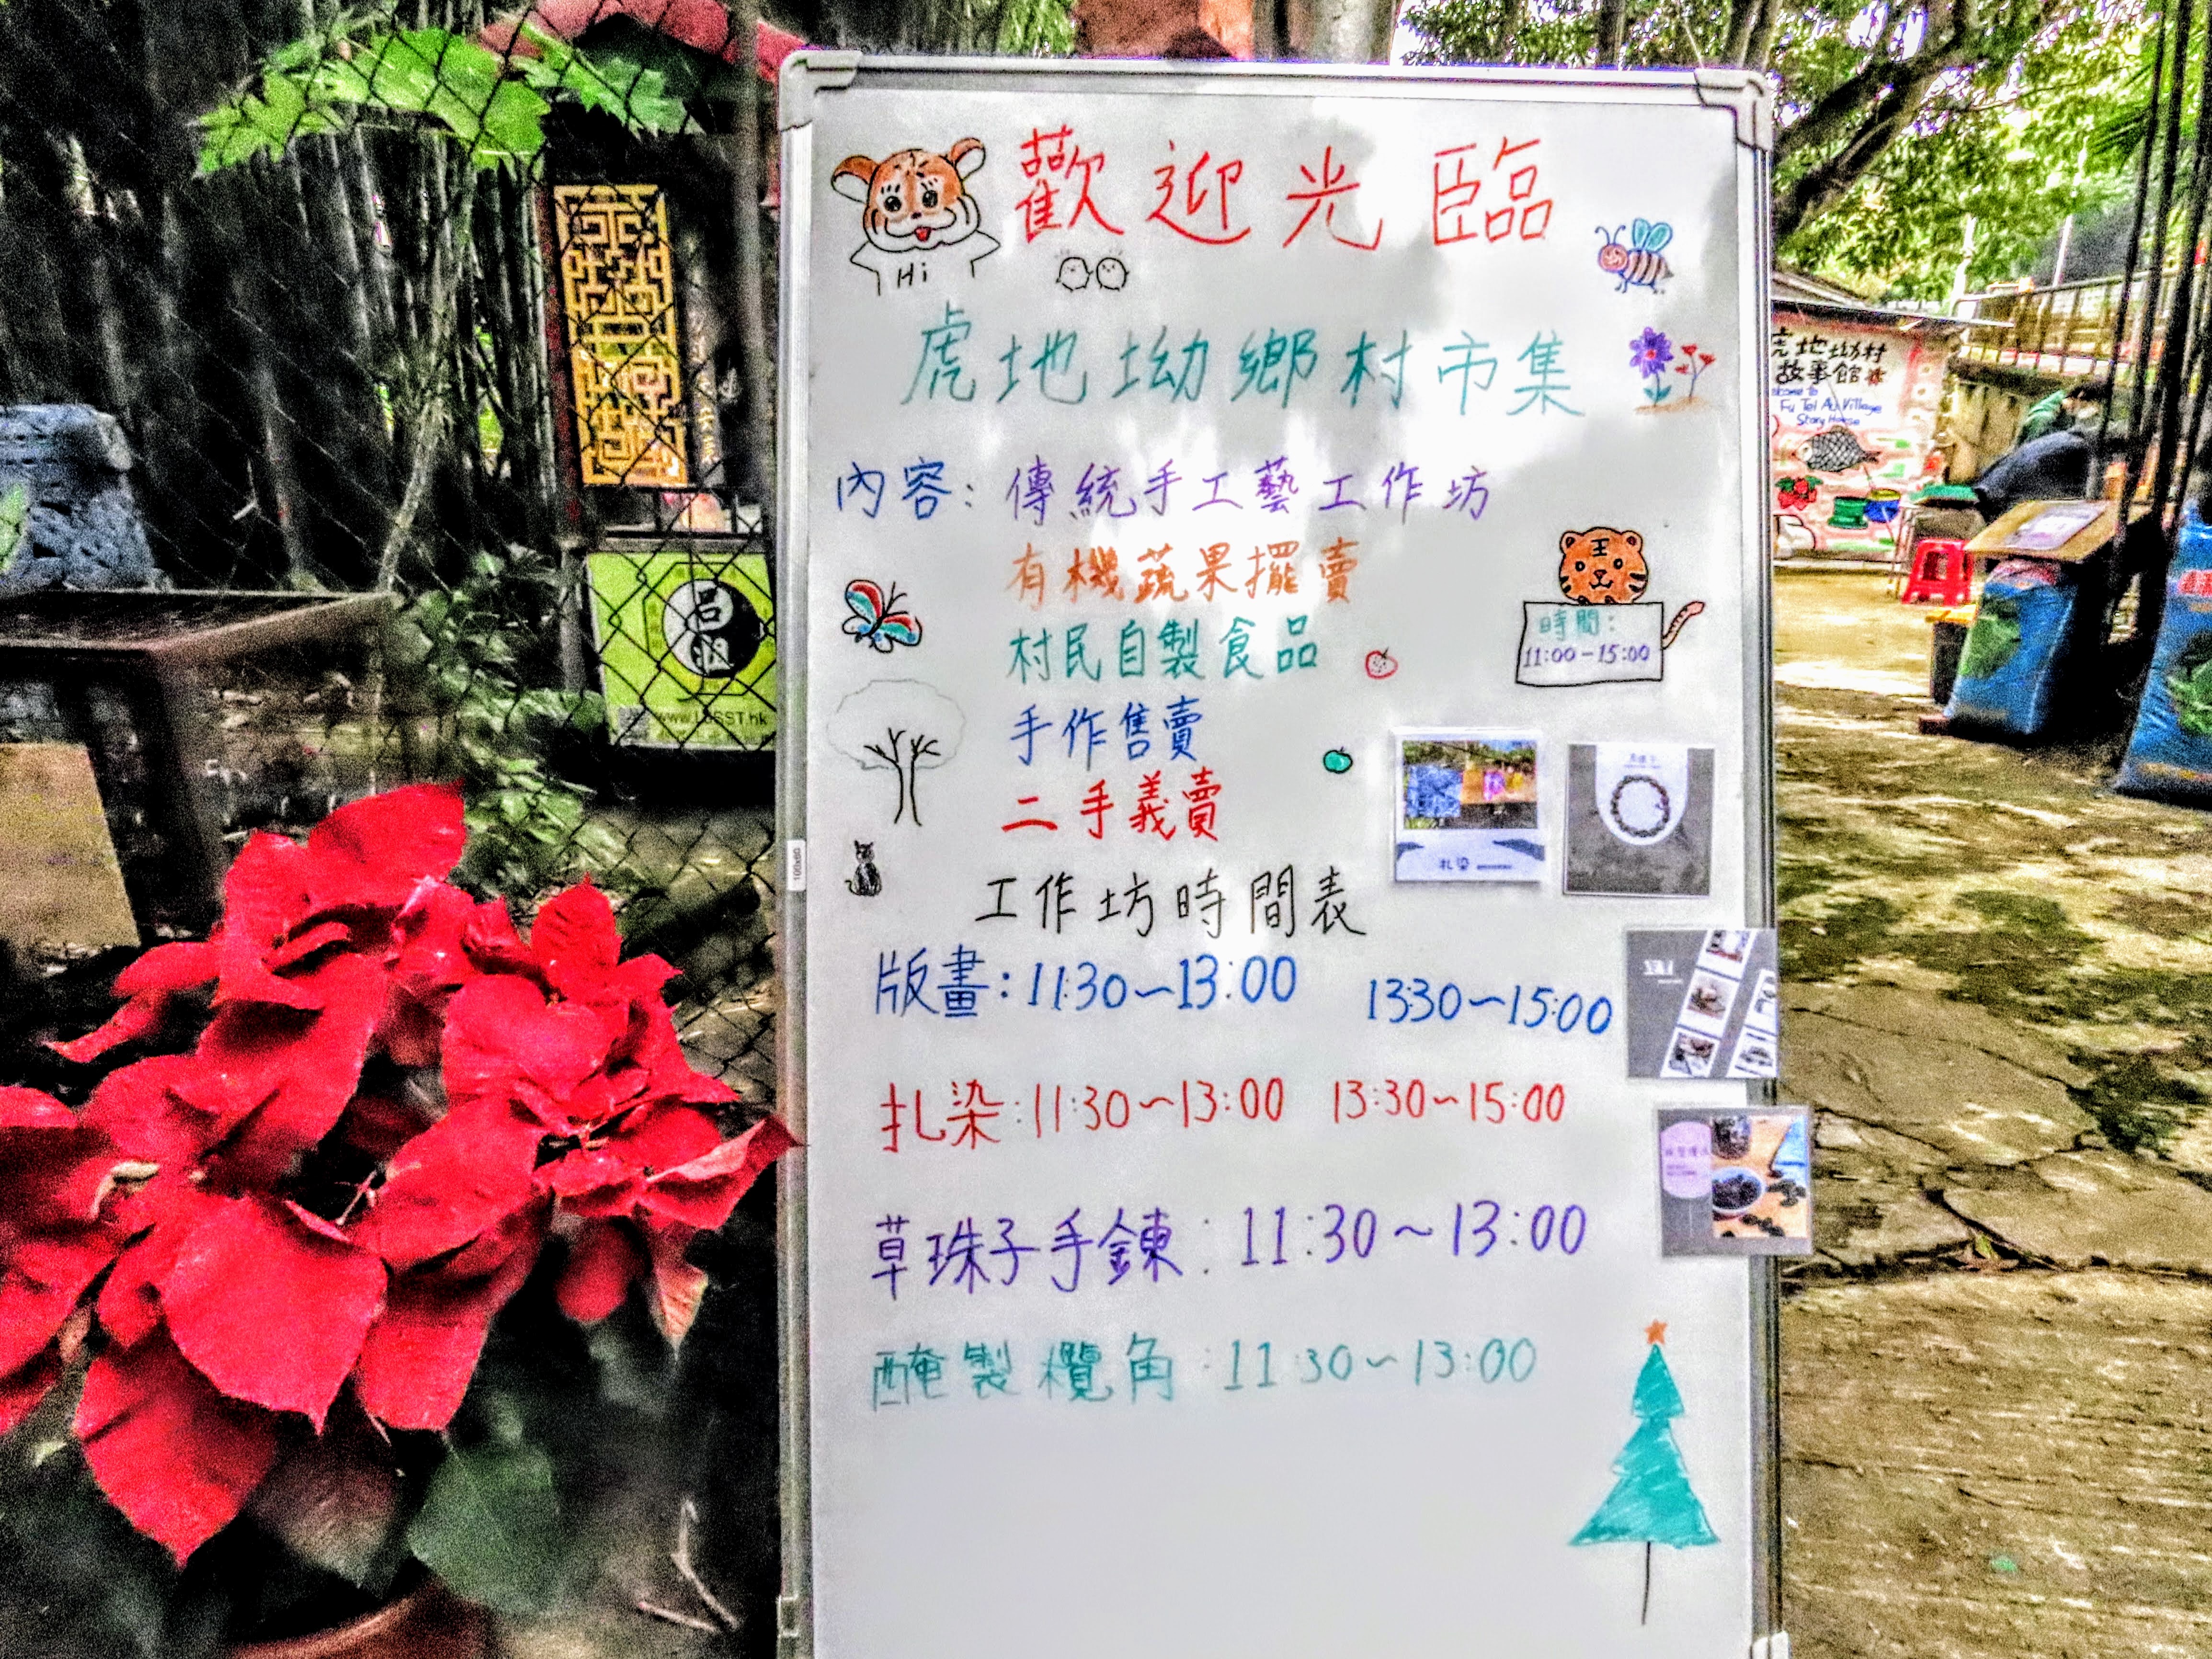 歡迎光臨
Hi
虎地坳鄉村市集
內容：傳統手工藝工作坊
有機蔬果擺賣
村民自製食品
手作售賣
二手義賣
時間：
11:00-15:00
工作坊時間表
版畫：11:30~13:00 13:30~15:00
扎染：11:30~13:00 13:30~15:00
草珠子手鍊：11:30~13:00
醃製欖角：11:30~13:00
扎染
100x60
呂祖
虎地坳村
故事館
Fu Tei Au Village
Story House